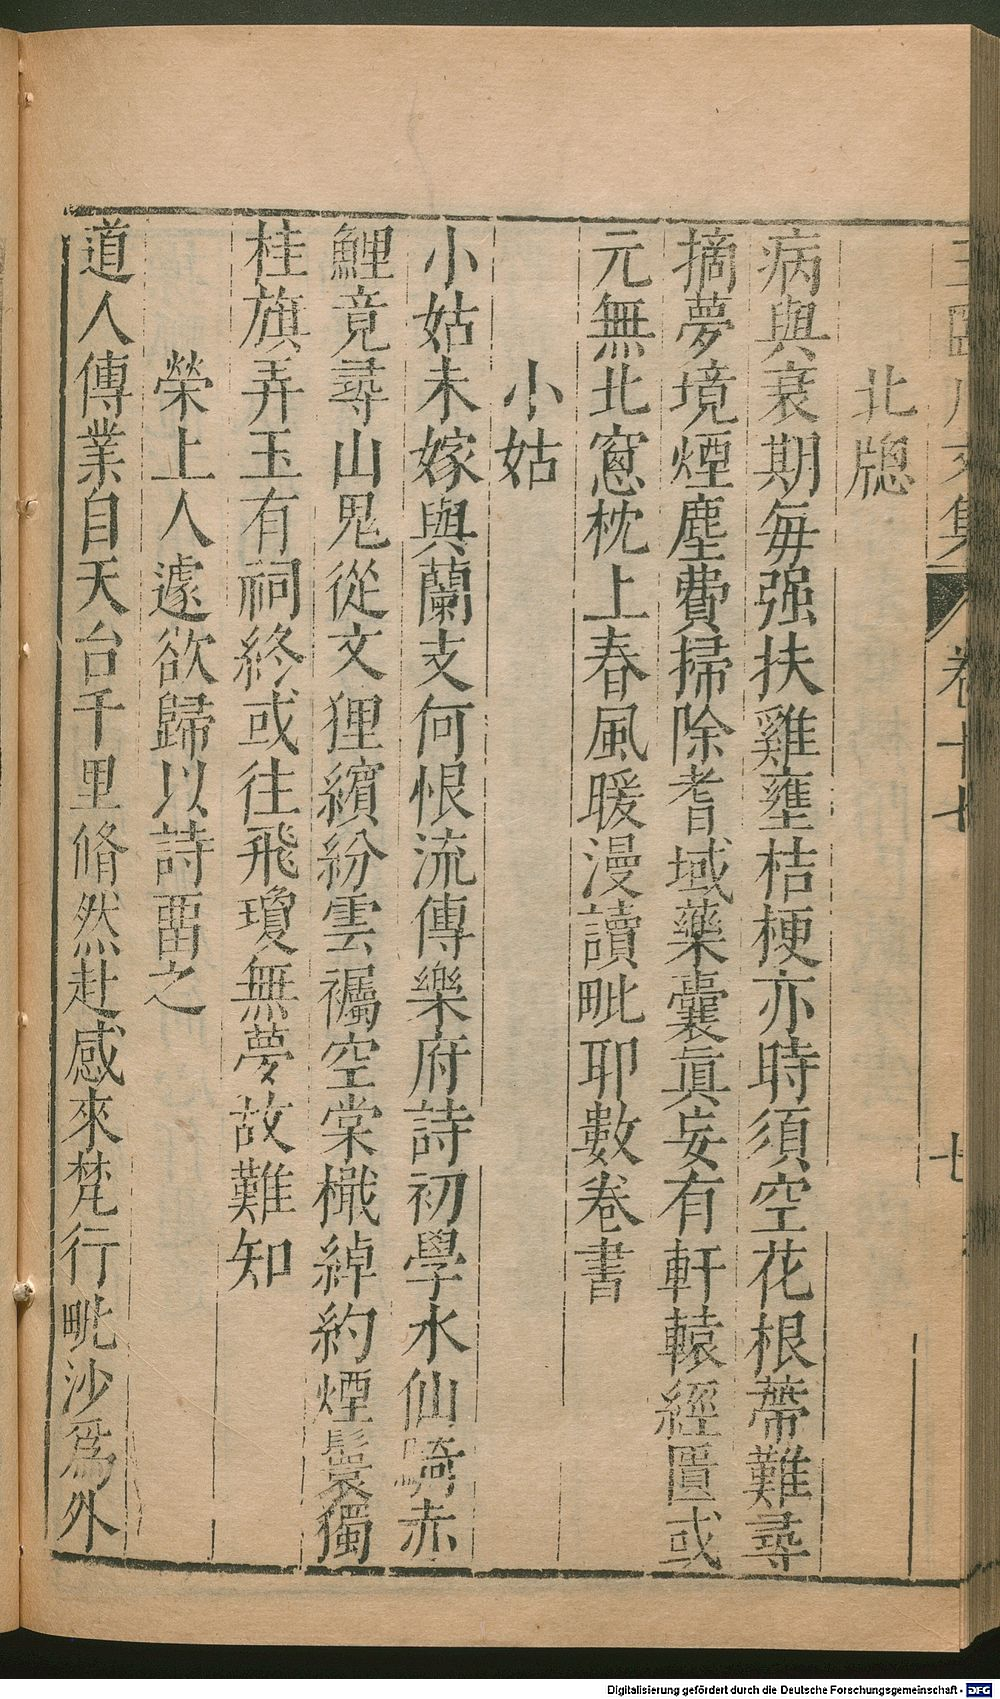 北牕
病與衰期每强扶雞壅桔梗亦時須空花根蔕難尋
摘夢境煙塵費掃除耆域藥囊眞妄有軒轅經匱或
元無北窻枕上春風暖漫讀毗耶數卷書
小姑
小姑未嫁與蘭支何恨流傳樂府詩初學水仙騎赤
鯉竟尋山鬼從文狸繽紛雲襹空棠檝綽約煙鬟獨
桂旗弄玉有祠終或往飛瓊無夢故難知
榮上人遽欲歸以詩畱之
道人傳業自天台千里翛然赴感來梵行毗沙爲外
Digitalisierung gefördert durch die Deutsche Forschungsgemeinschaft - DFG